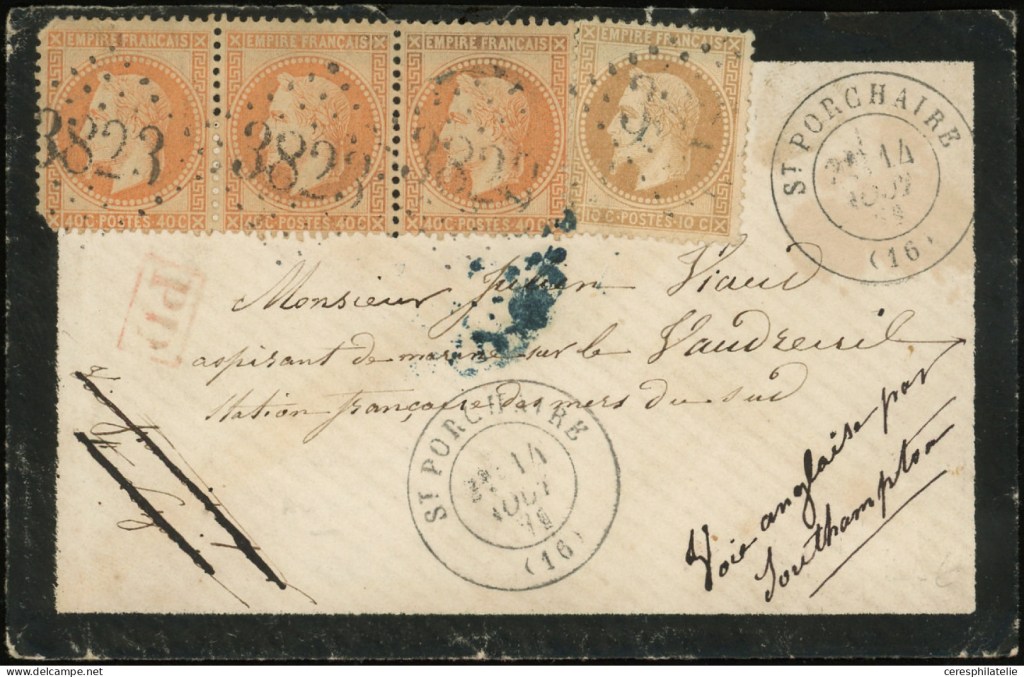 EMPIRE FRANÇAIS EMPIRE FRANÇAIS EMPIRE FRANÇAIS EMPIRE FRANÇAIS
3823 3823 3823
40 C POSTES 40 C 40 C POSTES 40 C 40 C POSTES 40 C 10 C POSTES 10 C
ST PORCHAIRE
14
AOUT
(16)
PD
Monsieur Julien Viaud
aspirant de marine sur le Vaudreuil
Station française des mers du sud
ST PORCHAIRE
14
AOUT
(16)
Voie anglaise par
Southampton
ceresphilatelie